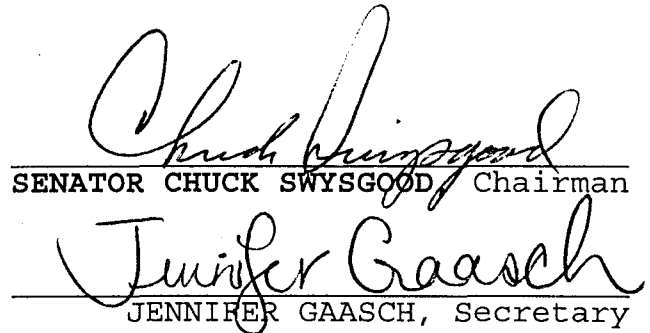 Chuck Swysgood
SENATOR CHUCK SWYSGOOD, Chairman
Jennifer Gaasch
JENNIFER GAASCH, Secretary